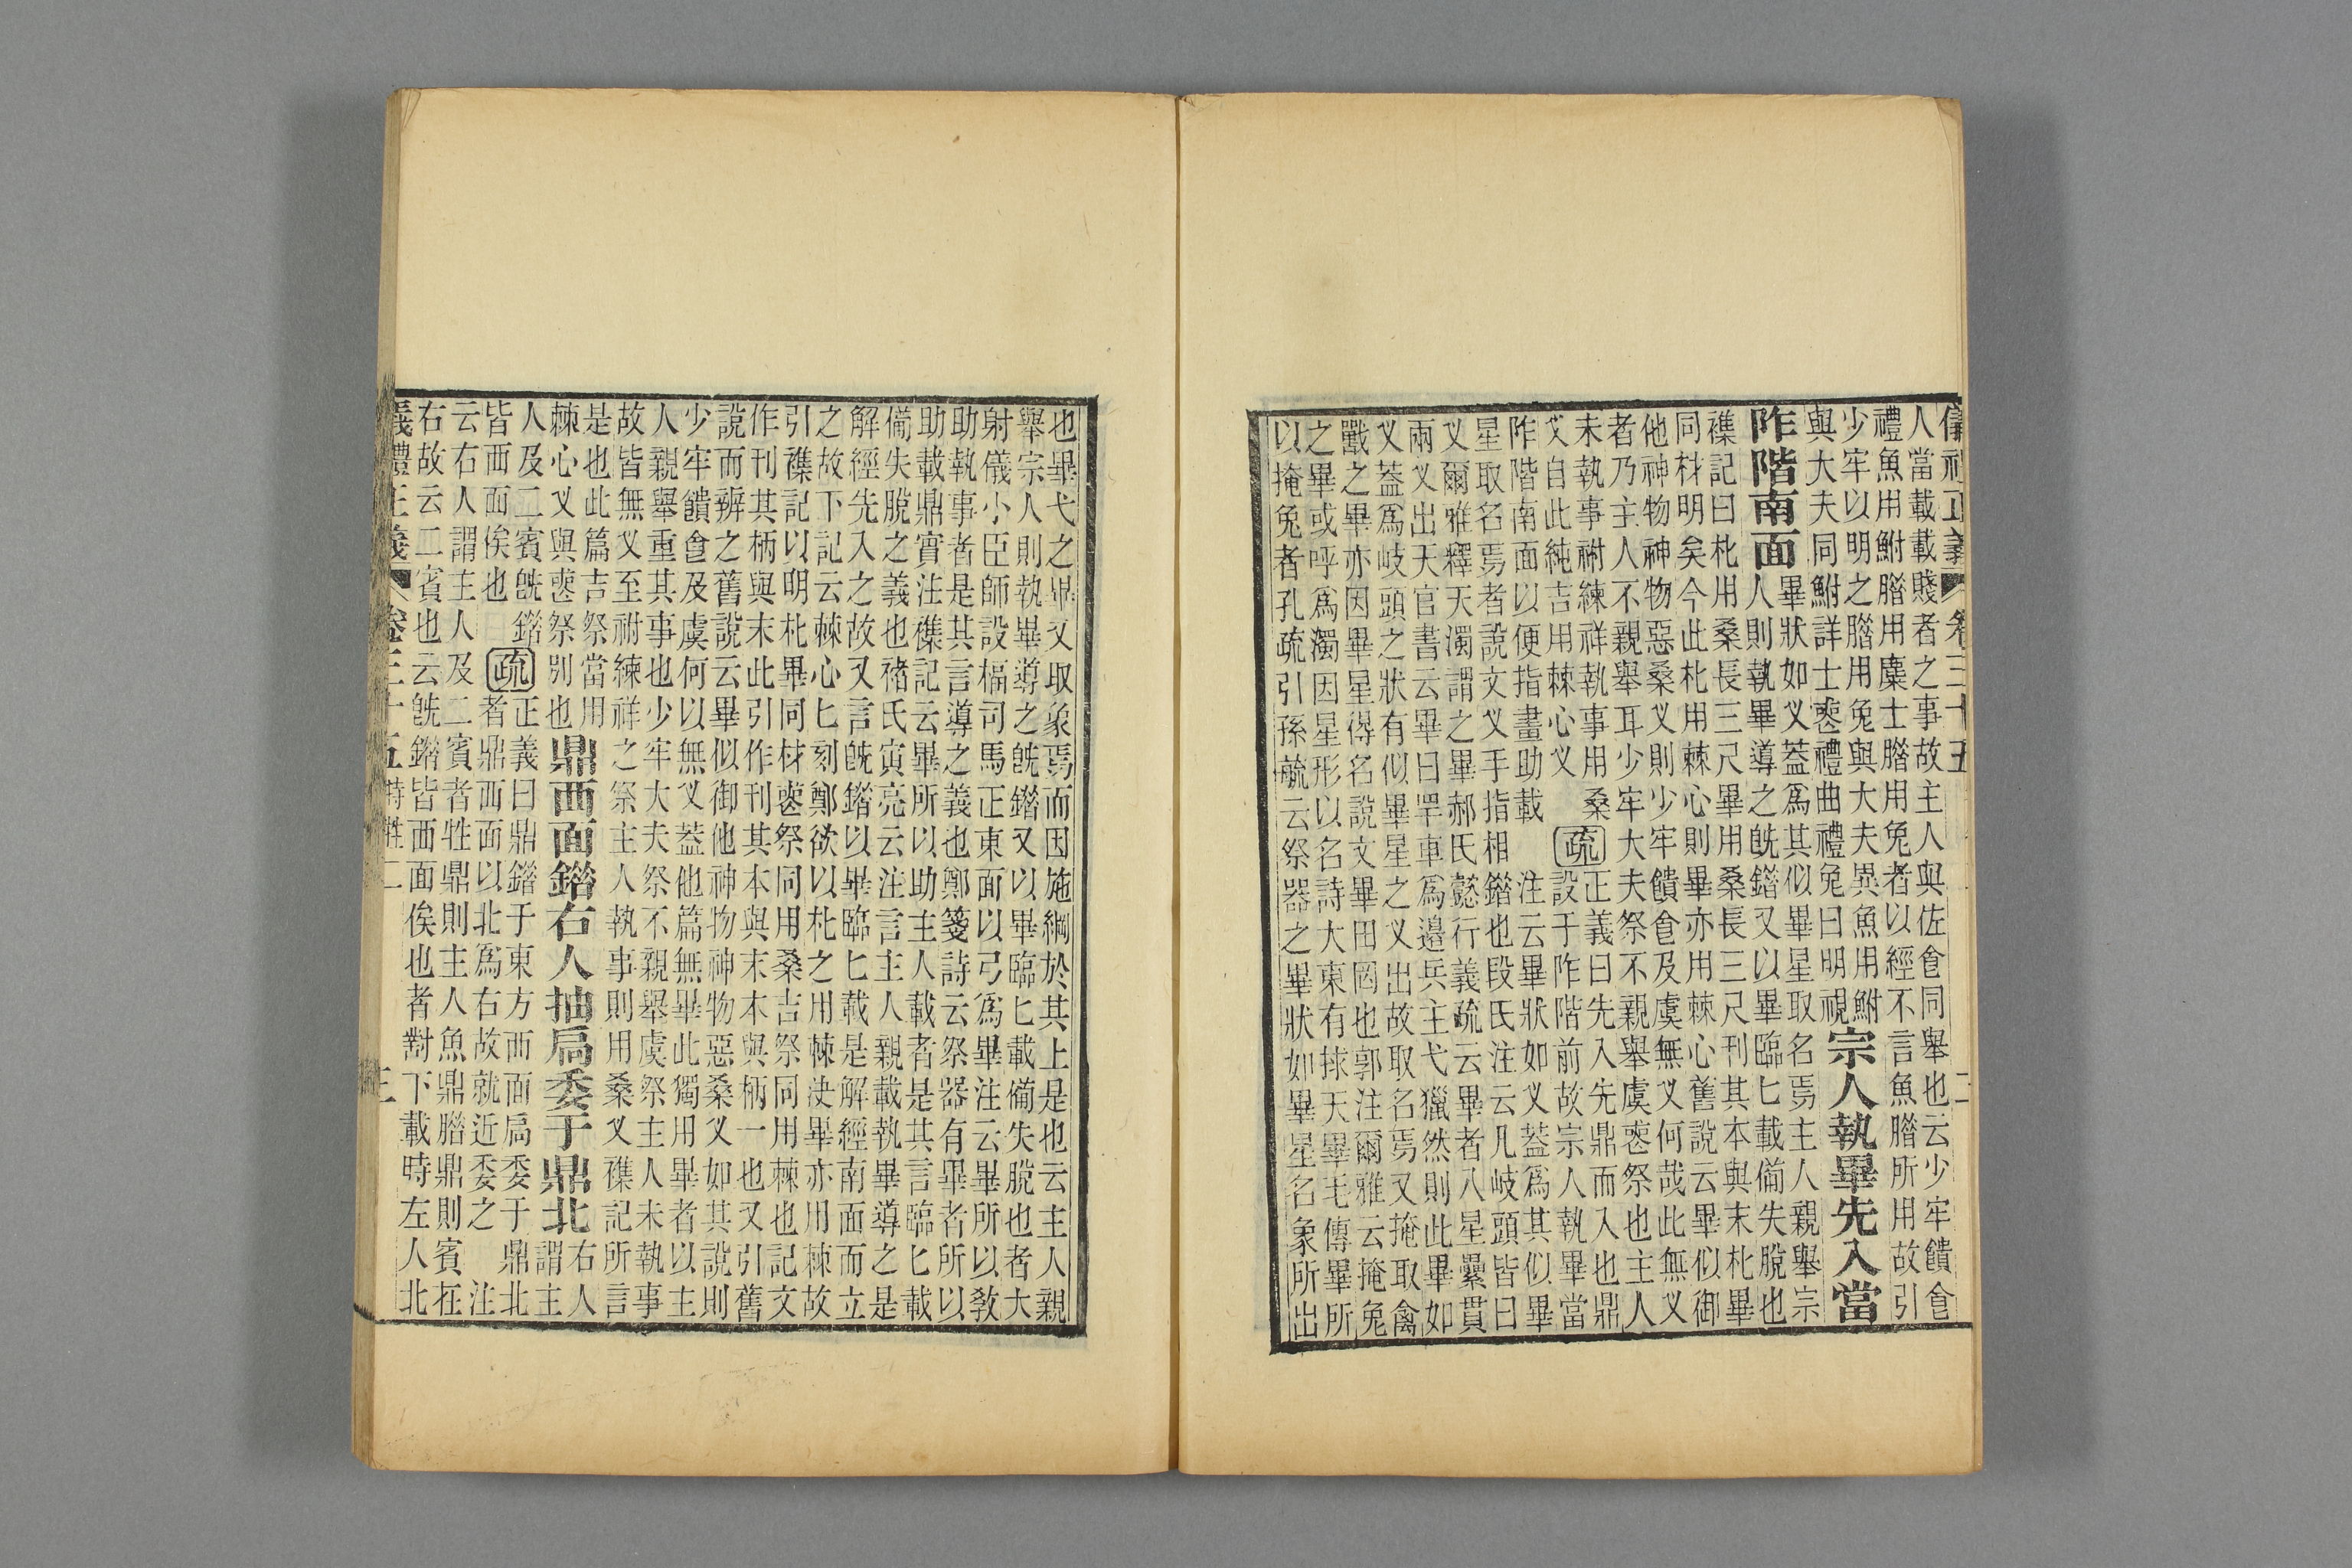 儀禮正義 卷三十五 二
人當載載賤者之事故主人與佐食同舉也云少牢饋食
禮魚用鮒腊用麋士腊用兔者以經不言魚腊所用故引
少牢以明之腊用兔與大夫異魚用鮒
與大夫同鮒詳士喪禮曲禮兔曰明視
宗人執畢先入當
阼階南面
畢狀如叉蓋爲其似畢星取名焉主人親舉宗
人則執畢導之旣錯又以畢臨匕載備失脫也
襍記曰朼用桑長三尺畢用桑長三尺刊其本與末朼畢
同材明矣今此朼用棘心則畢亦用棘心舊說云畢似御
他神物神物惡桑叉則少牢饋食及虞無叉何哉此無叉
者乃主人不親舉耳少牢大夫祭不親舉虞喪祭也主人
未執事祔練祥執事用桑
叉自此純吉用棘心叉
疏
正義曰先入先鼎而入也鼎
設于阼階前故宗人執畢當
阼階南面以便指畫助載 注云畢狀如叉蓋爲其似畢
星取名焉者說文叉手指相錯也段氏注云凡岐頭皆曰
叉爾雅釋天濁謂之畢郝氏懿行義疏云畢者八星纍貫
兩叉出天官書云畢曰罕車爲邊兵主弋獵然則此畢如
叉蓋爲岐頭之狀有似畢星之叉出故取名焉又掩取禽
獸之畢亦因畢星得名說文畢田罔也郭注爾雅云掩兔
之畢或呼爲濁因星形以名詩大東有捄天畢毛傳畢所
以掩兔者孔疏引孫毓云祭器之畢狀如畢星名象所出
也畢弋之畢又取象焉而因施網於其上是也云主人親
舉宗人則執畢導之旣錯又以畢臨匕載備失脫也者大
射儀小臣師設楅司馬正東面以弓爲畢注云畢所以敎
助執事者是其言導之義也鄭箋詩云祭器有畢者所以
助載鼎實注襍記云畢所以助主人載者是其言臨匕載
備失脫之義也褚氏寅亮云注言主人親載執畢導之是
解經先入之故又言旣錯以畢臨匕載是解經南面而立
之故下記云棘心匕刻鄭欲以朼之用棘決畢亦用棘故
引襍記以明朼畢同材喪祭同用桑吉祭同用棘也記文
作刊其柄與末此引作刊其本與末本與柄一也又引舊
說而辨之舊說云畢似御他神物神物惡桑叉如其說則
少牢饋食及虞何以無叉蓋他篇無畢此獨用畢者以主
人親舉重其事也少牢大夫祭不親舉虞祭主人未執事
故皆無叉至祔練祥之祭主人執事則用桑叉襍記所言
是也此篇吉祭當用
棘心叉與喪祭別也
鼎西面錯右人抽扃委于鼎北
右人
謂主
人及二賓旣錯
皆西面俟也
疏
正義曰鼎錯于東方西面扃委于鼎北
者鼎西面以北爲右故就近委之 注
云右人謂主人及二賓者牲鼎則主人魚鼎腊鼎則賓在
右故云二賓也云旣錯皆西面俟也者對下載時左人北
義禮正義 卷三十五 特牲二 三